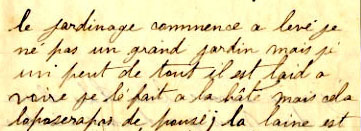 le jardinage commence a levé je
né pas un grand jardin mais jé
un peut de tout il est laid a
voire je lé fait a la hâte mais cela
loposerapas de pousé j la laine est